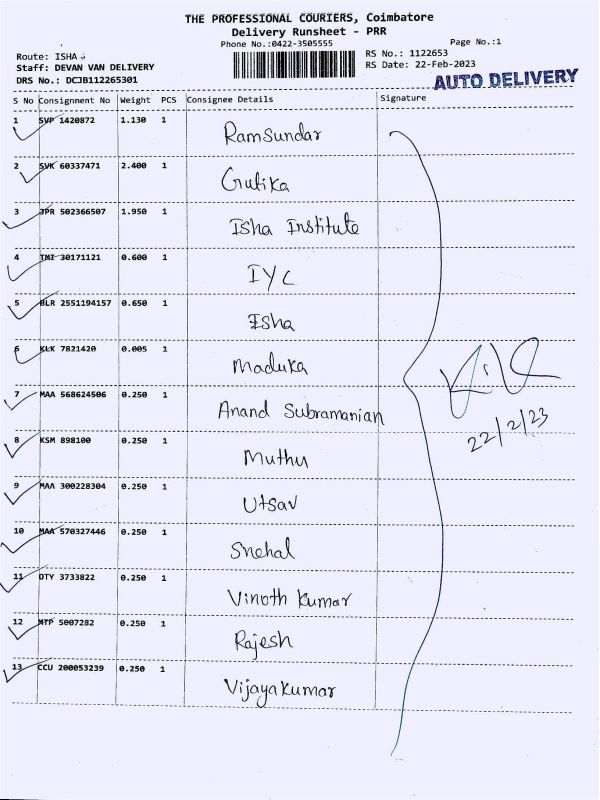 THE PROFESSIONAL COURIERS, Coimbatore
Delivery Runsheet - PRR
Phone No.:0422-3505555 Page No.:1
Route: ISHA RS No.: 1122653
Staff: DEVAN VAN DELIVERY RS Date: 22-Feb-2023
DRS No.: DCJB112265301 AUTO DELIVERY
S No Consignment No Weight PCS Consignee Details Signature
1 SVP 1420872 1.130 1 Ramsundar
2 SVK 60337471 2.400 1 Grutika
3 JPR 502366507 1.950 1 Isha Institute
4 TMI 30171121 0.600 1 IYC
5 BLR 2551194157 0.650 1 Isha
6 KLK 7821420 0.005 1 Maduka
7 MAA 568624506 0.250 1 Anand Subramanian
8 KSM 898100 0.250 1 Muthu
22/2/23
9 MAA 300228304 0.250 1 Utsav
10 MAA 570327446 0.250 1 Snehal
11 DTY 3733822 0.250 1 Vinoth Kumar
12 MTP 5007282 0.250 1 Rajesh
13 CCU 200053239 0.250 1 Vijayakumar